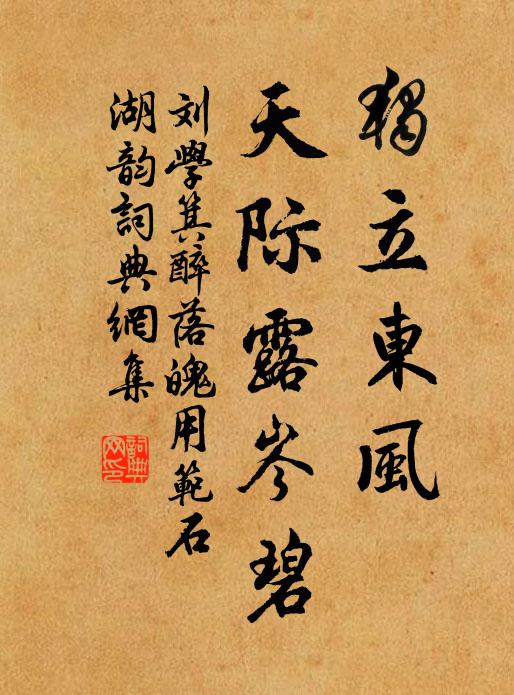 獨立東風
天际露岑碧
刘學箕醉落魄用範石
湖韵詞典網集
詞典
网印